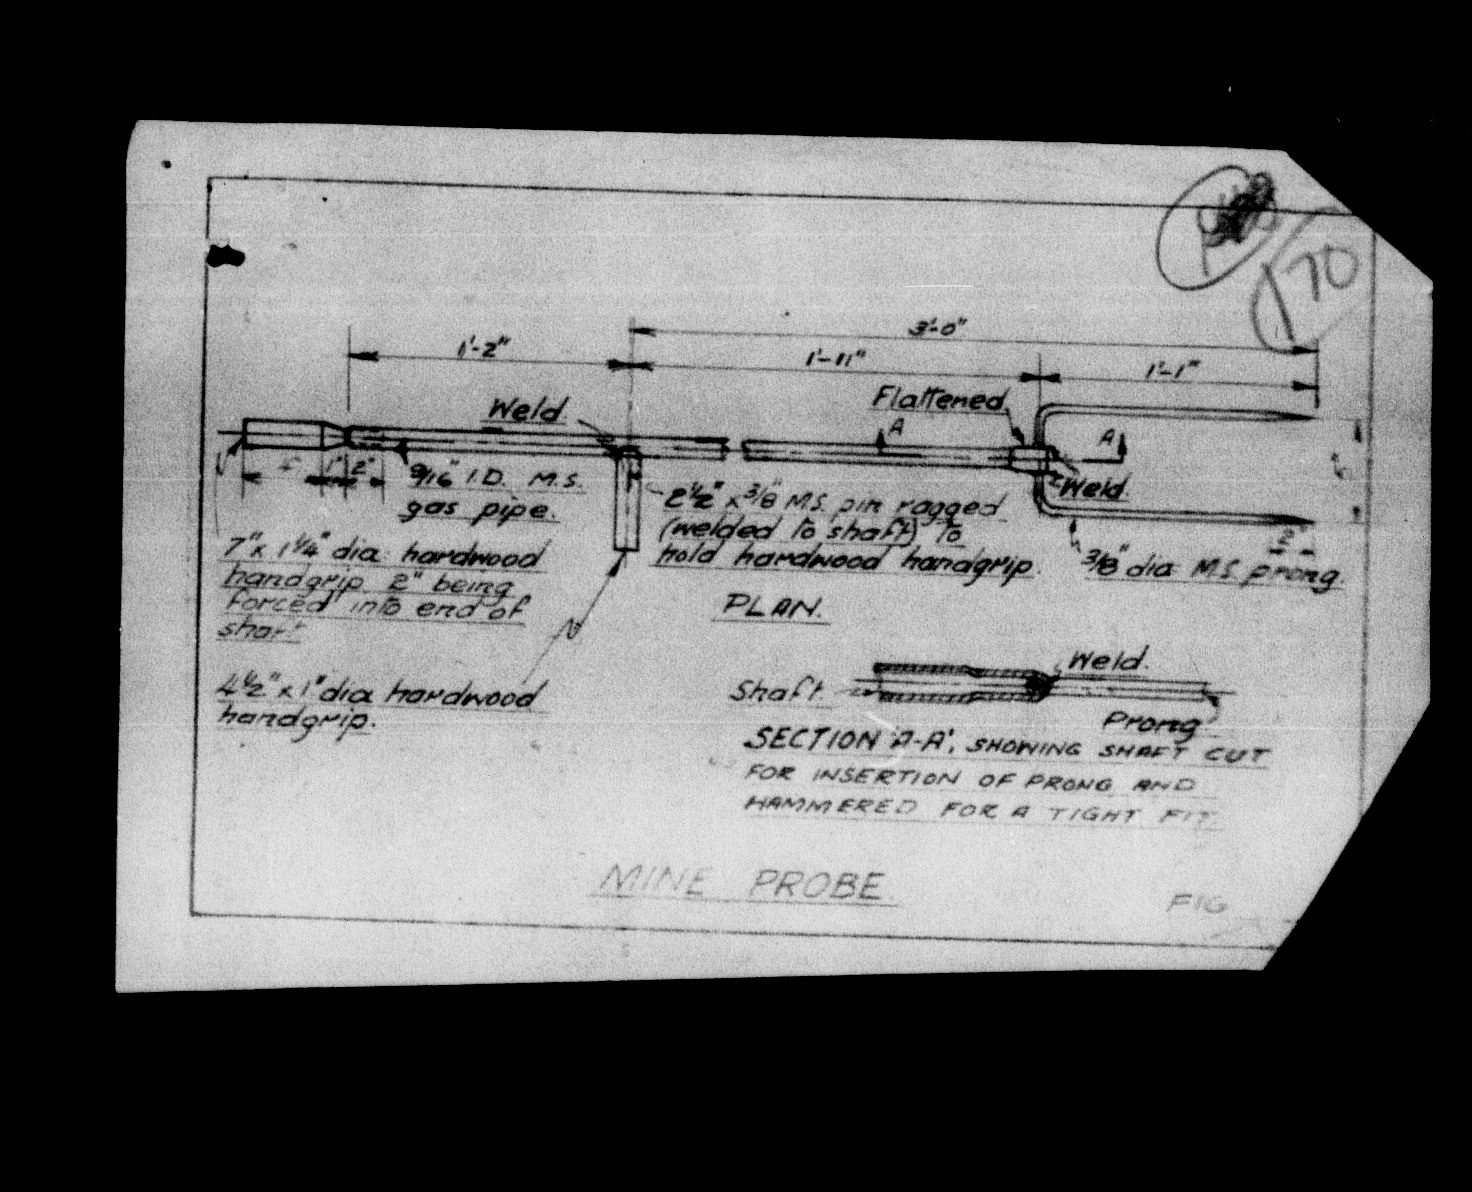 170
3'-0"
1'-2"
1'-11"
1'-1"
Flattened
Weld
A
A
1" 2"
9/16" I.D. M.S.
gas pipe.
Weld.
2½" x 3/8" M.S. pin ragged
(welded to shaft) to
hold hardwood handgrip.
3/8" dia M.S. prong.
2"
7" x 1¼" dia. hardwood
handgrip 2" being
forced into end of
shaft
PLAN.
4½" x 1" dia hardwood
handgrip.
Weld.
Shaft
Prong
SECTION 'A-A', SHOWING SHAFT CUT
FOR INSERTION OF PRONG AND
HAMMERED FOR A TIGHT FIT
MINE PROBE.
FIG